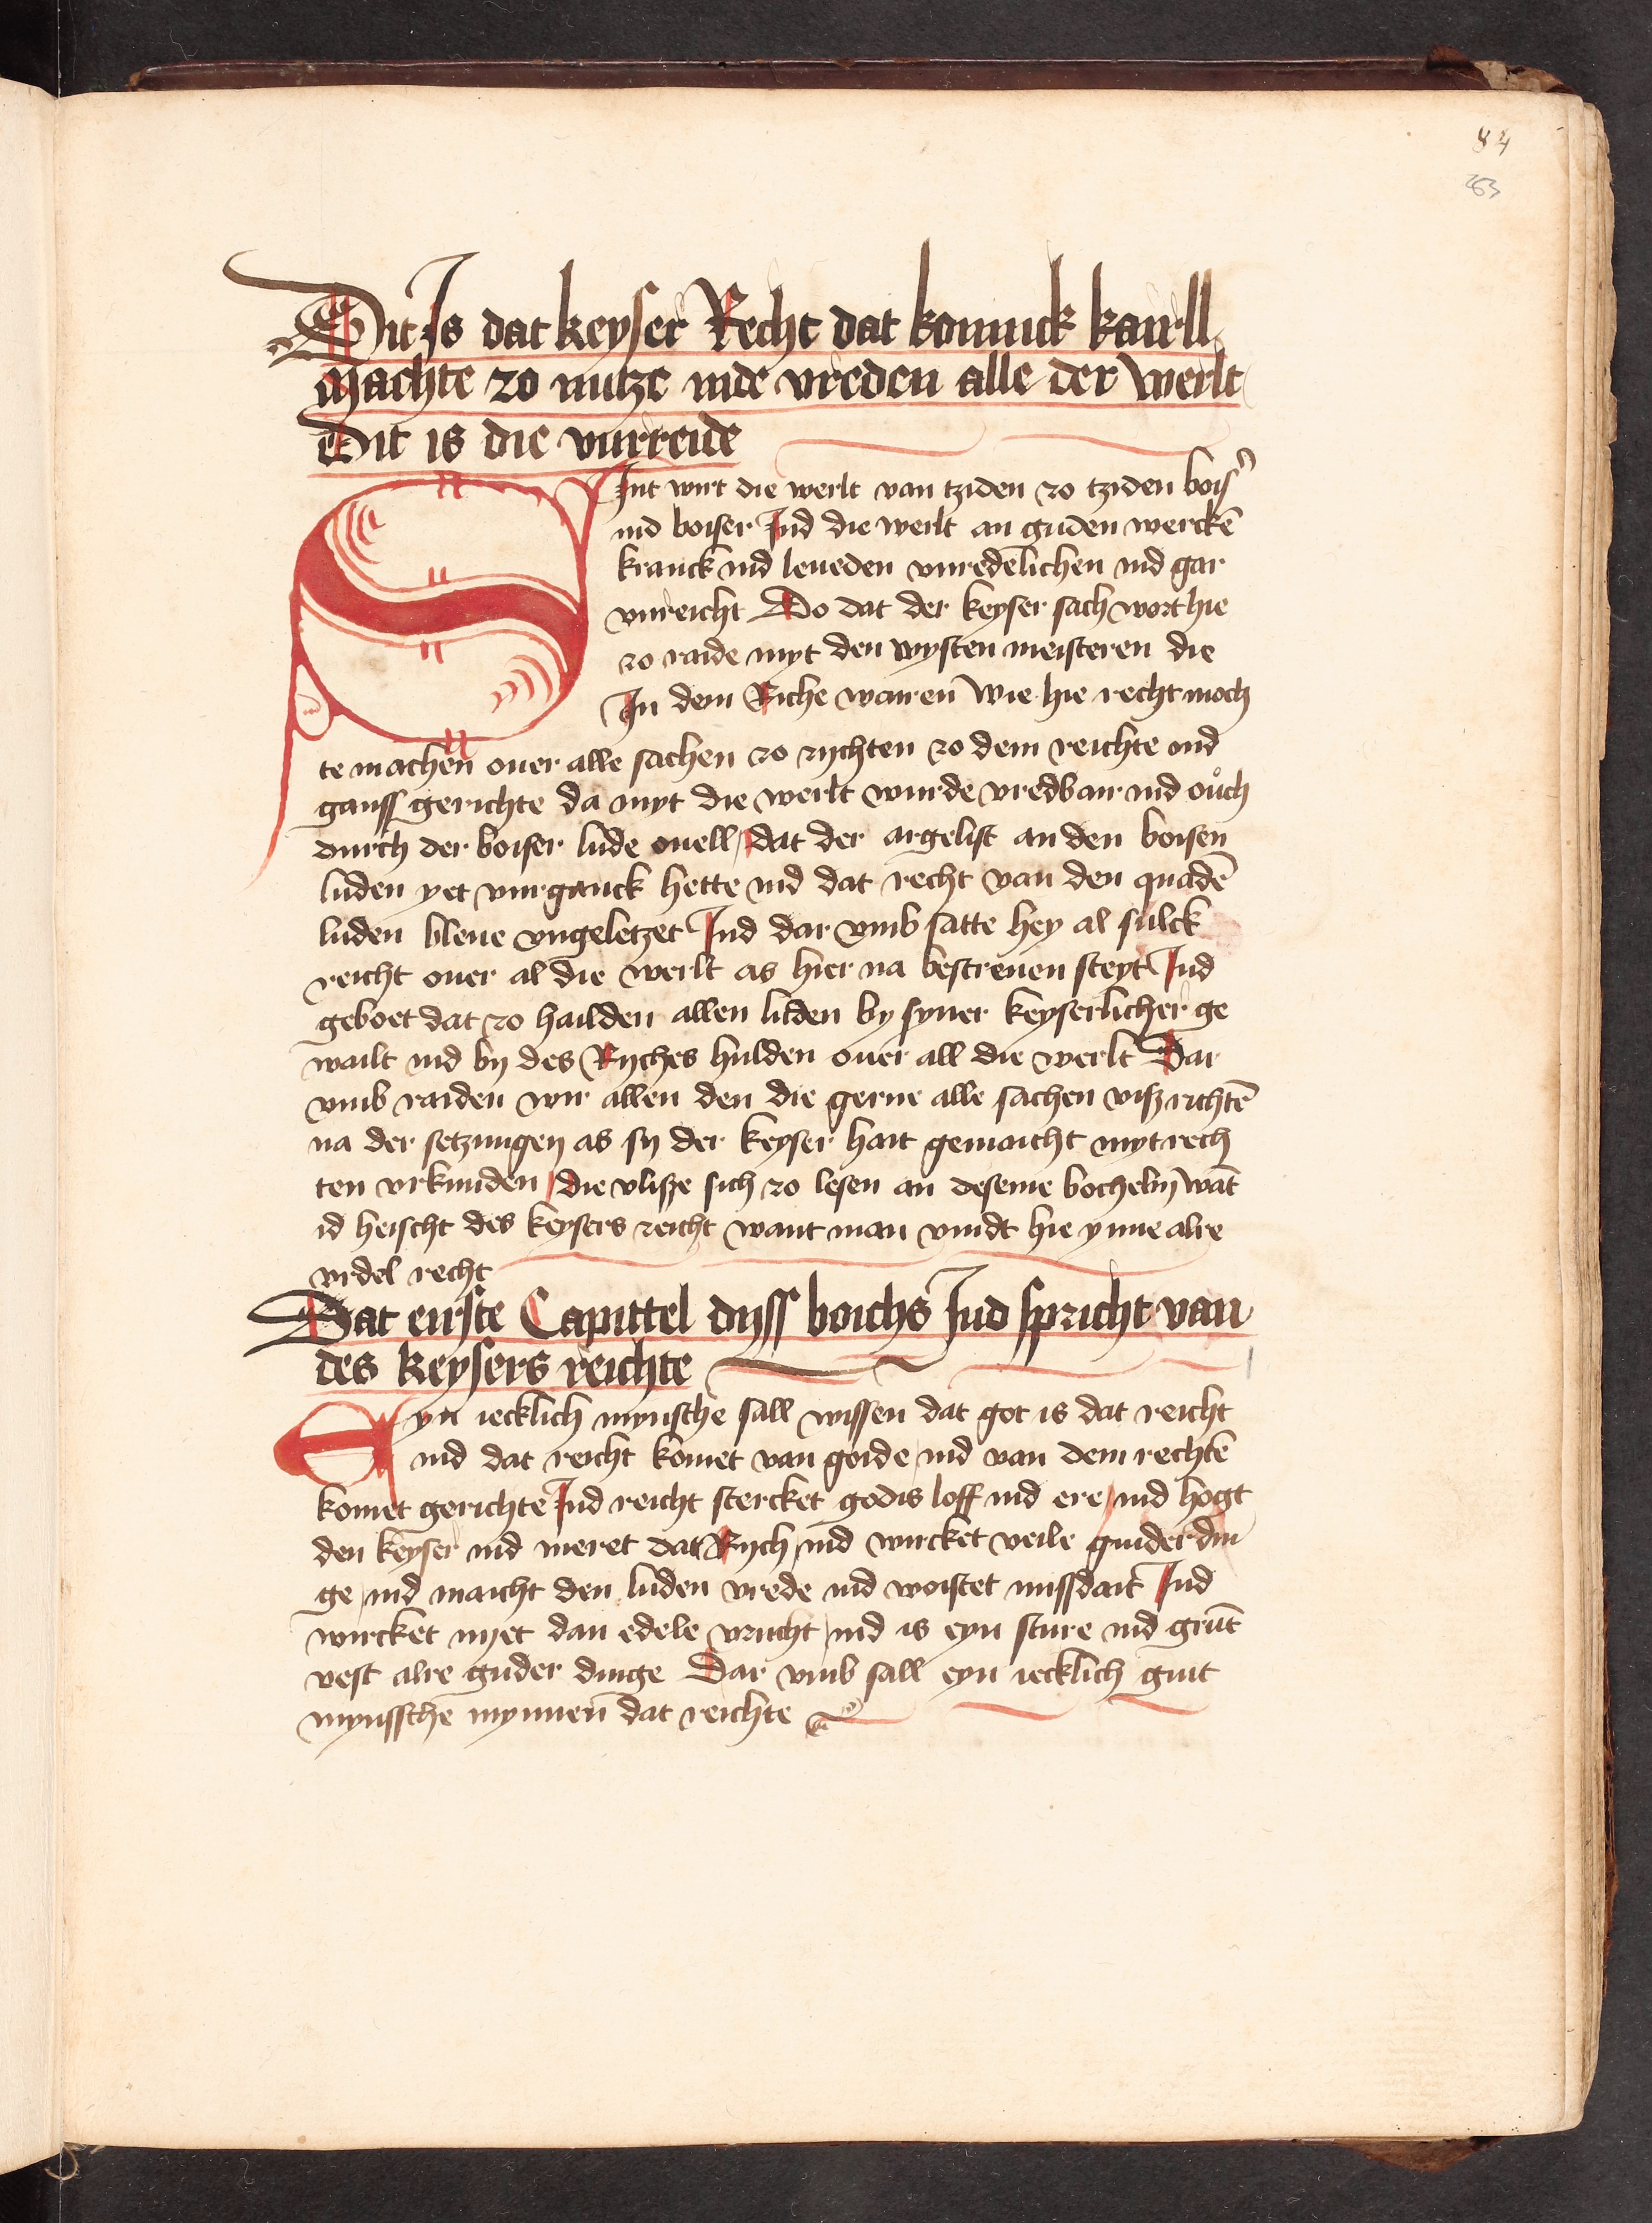 84
263
Dit Is dat keyser Recht dat konnick kairll
machte zo nutze inde vreden alle der werlt
Dit is die vurreide
SInt wirt die werlt van tziden zo tziden bois
ind boiser Ind die werlt an guden wercke͂
kranck ind leueden vnredelichen ind gar
vnreicht Do dat der keyser sach wort hie
zo raide myt den wysten meisteren die
In dem Riche wairen wie hie recht moch
te machen ouer alle sachen zo rychten zo dem reichte ind
ganss gerichte da myt die werlt wurde vredbair ind oůch
durch der boiser lude ouell / dat der argelist an den boisen
luden yet vurganck hette ind dat recht van den quade͂
luden bleue vngeletzet Ind dar vmb satte hey al sulck
reicht ouer al die werlt as hier na bescreuen steyt Ind
geboet dat zo hailden allen luden by syner keyserlicher ge
wailt ind by des Ryches hulden ouer all die werlt Dar
vmb raiden wir allen den die gerne alle sachen visz richte͂
na der setzungen as sy der keyser hait gemaicht myt rech
ten vrkunden / die vlisze sich zo lesen an deseme bochelyn wa͂t
id heischt des keysers reicht want man vindt hie ynne alre
vrdel recht
Dat eirste Capittel dyss boichs Ind spricht van
des keysers reichte
Eyn iecklich mynsche sall wissen dat got is dat reicht
ind dat reicht komet van goide / ind van dem rechte͂
komet gerichte Ind reicht stercket godis loff ind ere / ind hogt
den keyser ind meret dat Rych / ind wircket veile guider din
ge / ind maicht den luden vrede ind woistet missdait Ind
wircket nyet dan edele vrucht / ind is eyn sture ind gru͂t
vest alre guder dinge Dar vmb sall eyn iecklich guit
mynssche mynnen dat reichte